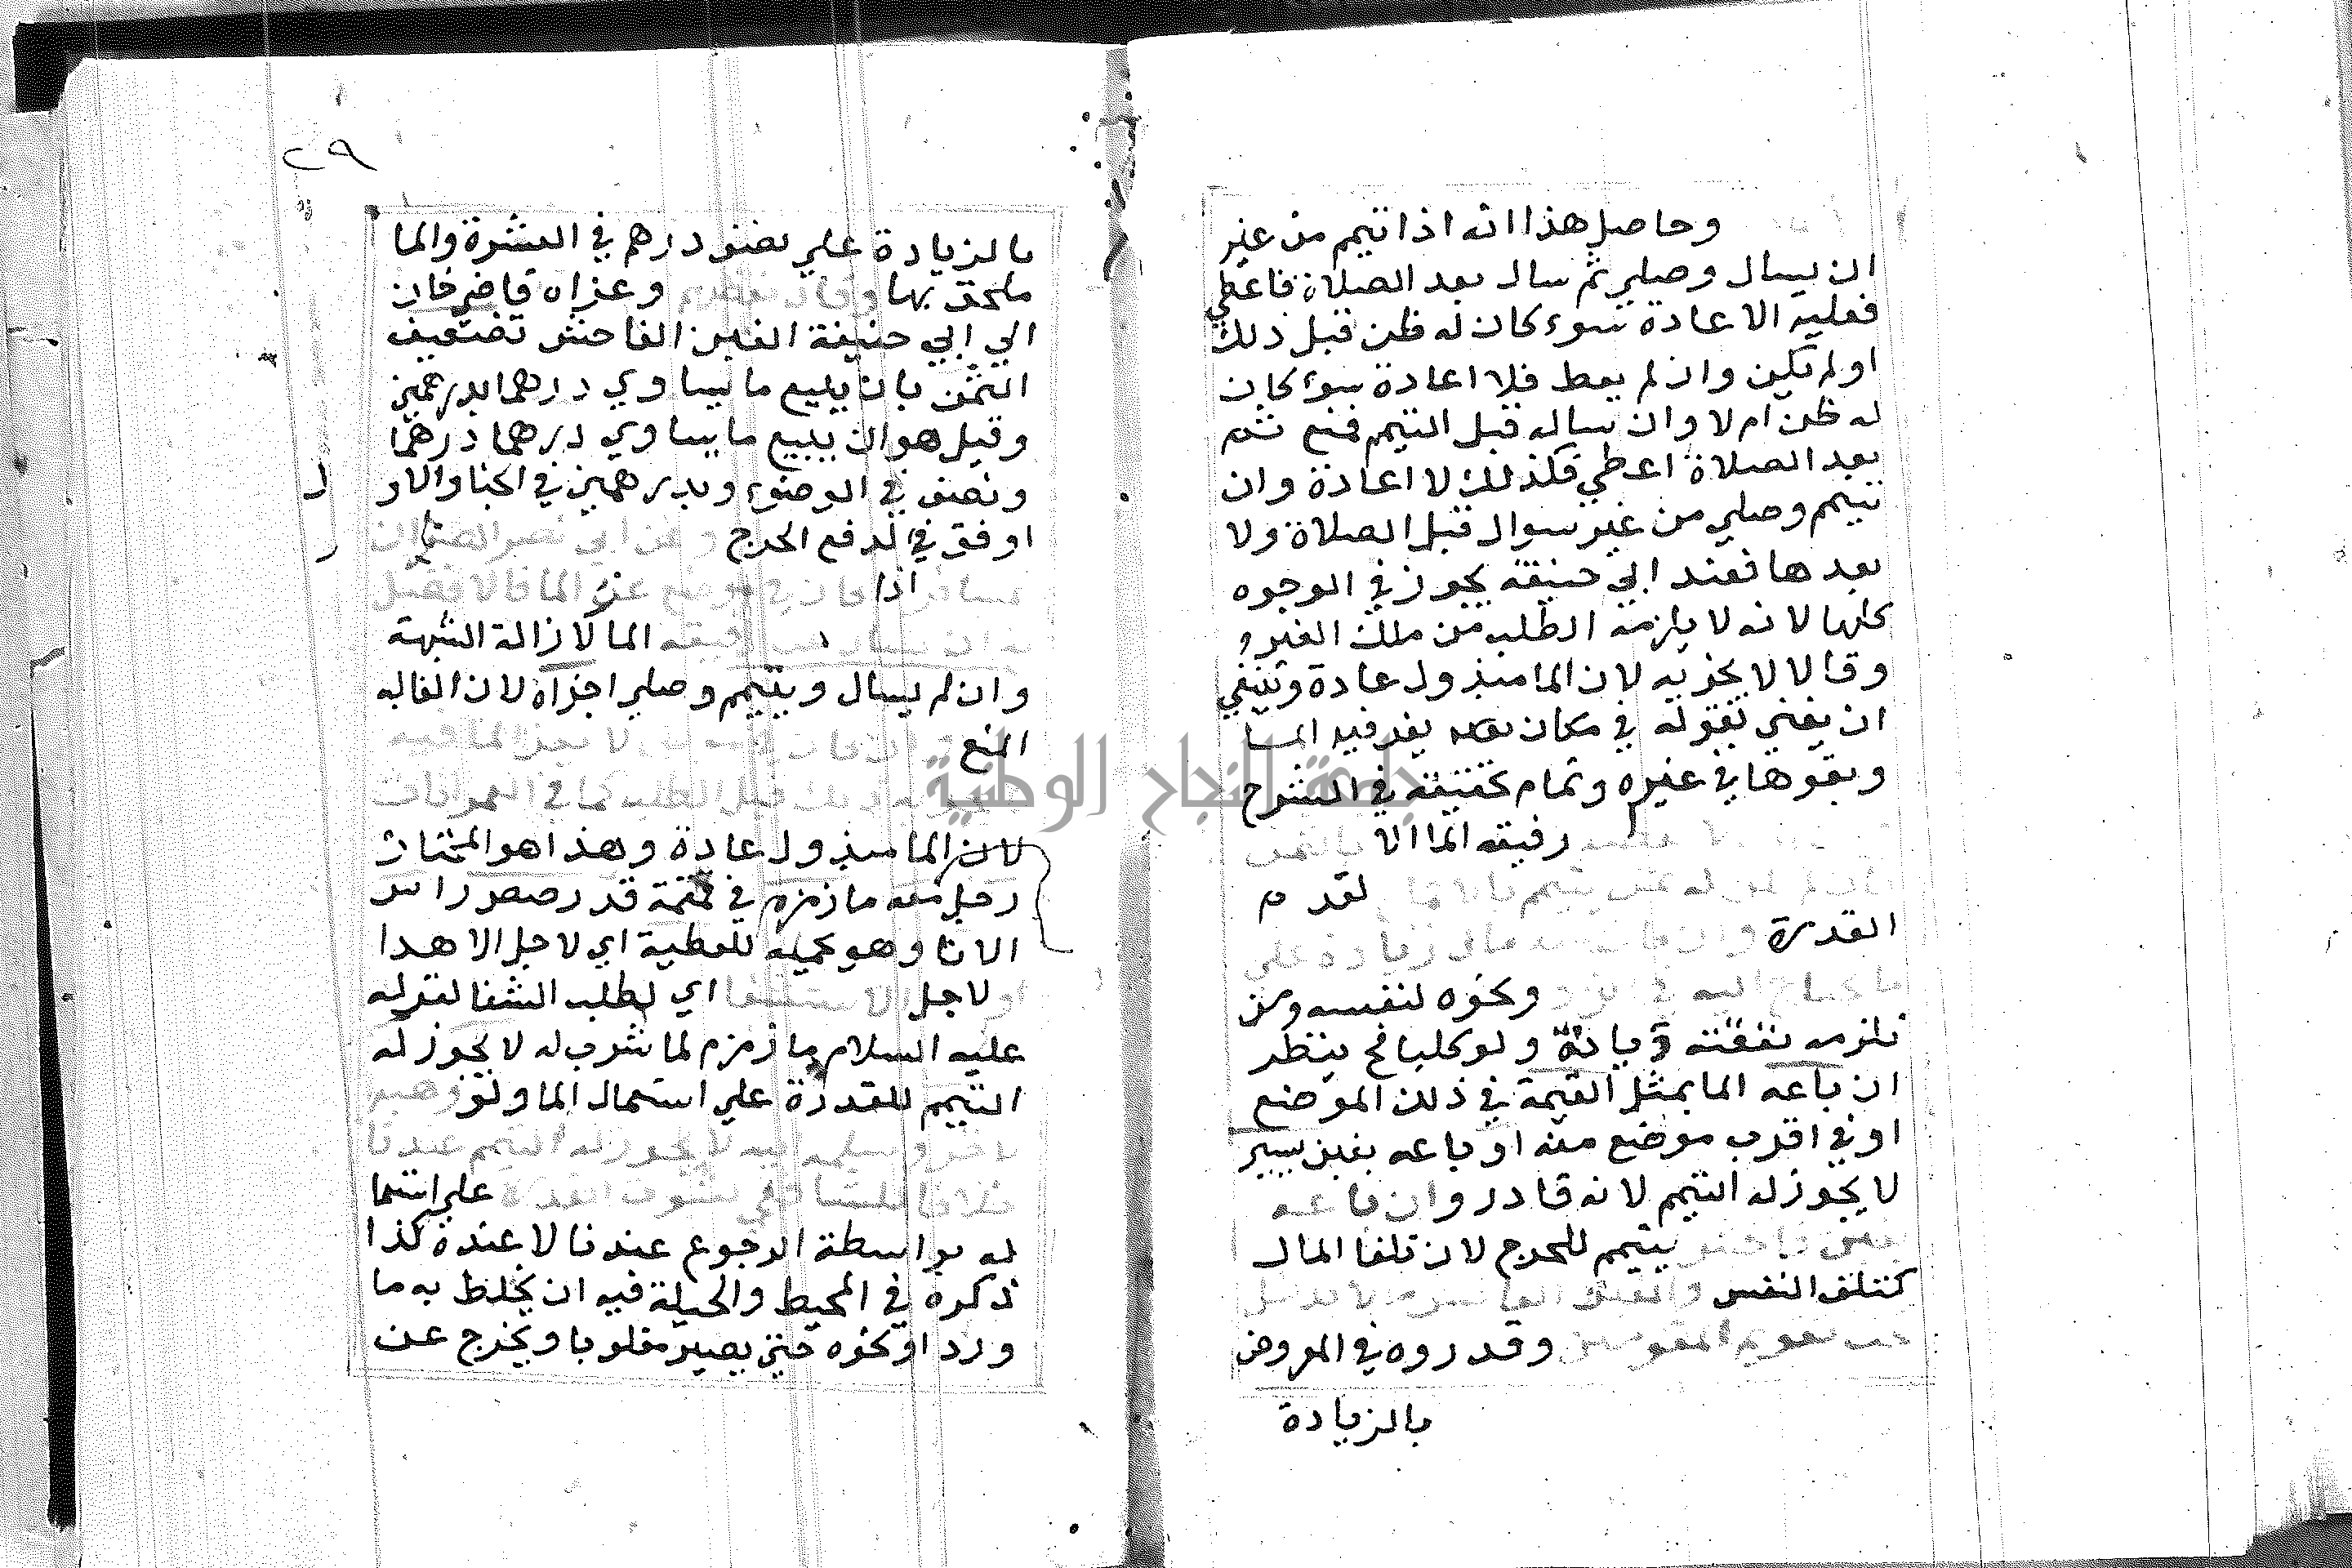 وحاصل هذا انه اذا تيمم من غير
ان يسال وصلي ثم سال بعد الصلاة فاعطي
فعليه الاعادة سوء كان له ظن قبل ذلك
اولم يكن وان لم يعط فلا اعادة سوء كان
له ظن ام لا وان ساله قبل التيمم فمنع ثم
بعد الصلاة اعطي فكذلك لا اعادة وان
تيمم وصلي من غير سوال قبل الصلاة ولا
بعدها فعند ابي حنيفة يجوز في الوجوه
كلها لانه لا يلزمه الطلب من ملك الغير و
وقالا لا يجزيه لان الما مبذول عادة وينبغي
ان يفتي بقوله في مكان يعز فيه الما
وبقوها في غيره وتمام تحقيقه في الشرح
رفيقه الما الا
لقد م
القدرة
ونحوه لنفسه ومن
تلزمه نفقته ديانة ولو كلبا فح ينظر
ان باعه الما بمثل القيمة في ذلك الموضع
او في اقرب موضع منه او باعه بغبن يسير
لا يجوز له التيمم لانه قادر وان باعه
يتيمم للحرج لان تلفا المال
كتلف النفس
وقدروه في العروض
بالزيادة
٢٩
بالزيادة علي نصف درهم في العشرة والما
ملحق بها وعزاه قاضي خان
الي ابي حنيفة الغبن الفاحش تضعيف
الثمن بان يبيع ما يساوي درهما بدرهمين
وقيل هو ان يبيع ما يساوي درهما درهما
ونصف في الوضوء وبدرهمين في الجنا والاو
اوفق في لدفع الحرج وعن ابي نصر الصفار ان
اذا
الما لازالة الشبهة
وان لم يسال ويتيمم وصلي اجزاه لان الغالب
المنع
لان الما مبذول عادة وهذا هو المختار
رجل معه ما زمزم في قمقمة قد رصص راس
الانا وهو يحمله للعطية اي لاجل الاهدا
لاجل الاستشفا اي لطلب الشفا لقوله
عليه السلام ما زمزم لما شرب له لا يجوز له
التيمم للقدرة علي استعمال الما ولو وهبه
لاخر وسلمه اليه لا يجوز له التيمم عندنا
علي استعما
له بواسطة الرجوع عندنا لا عنده كذا
ذكره في المحيط والحيلة فيه ان يخلط به ما
ورد او نحوه حتي يصير مغلوبا ويخرج عن
جامعة النجاح الوطنية